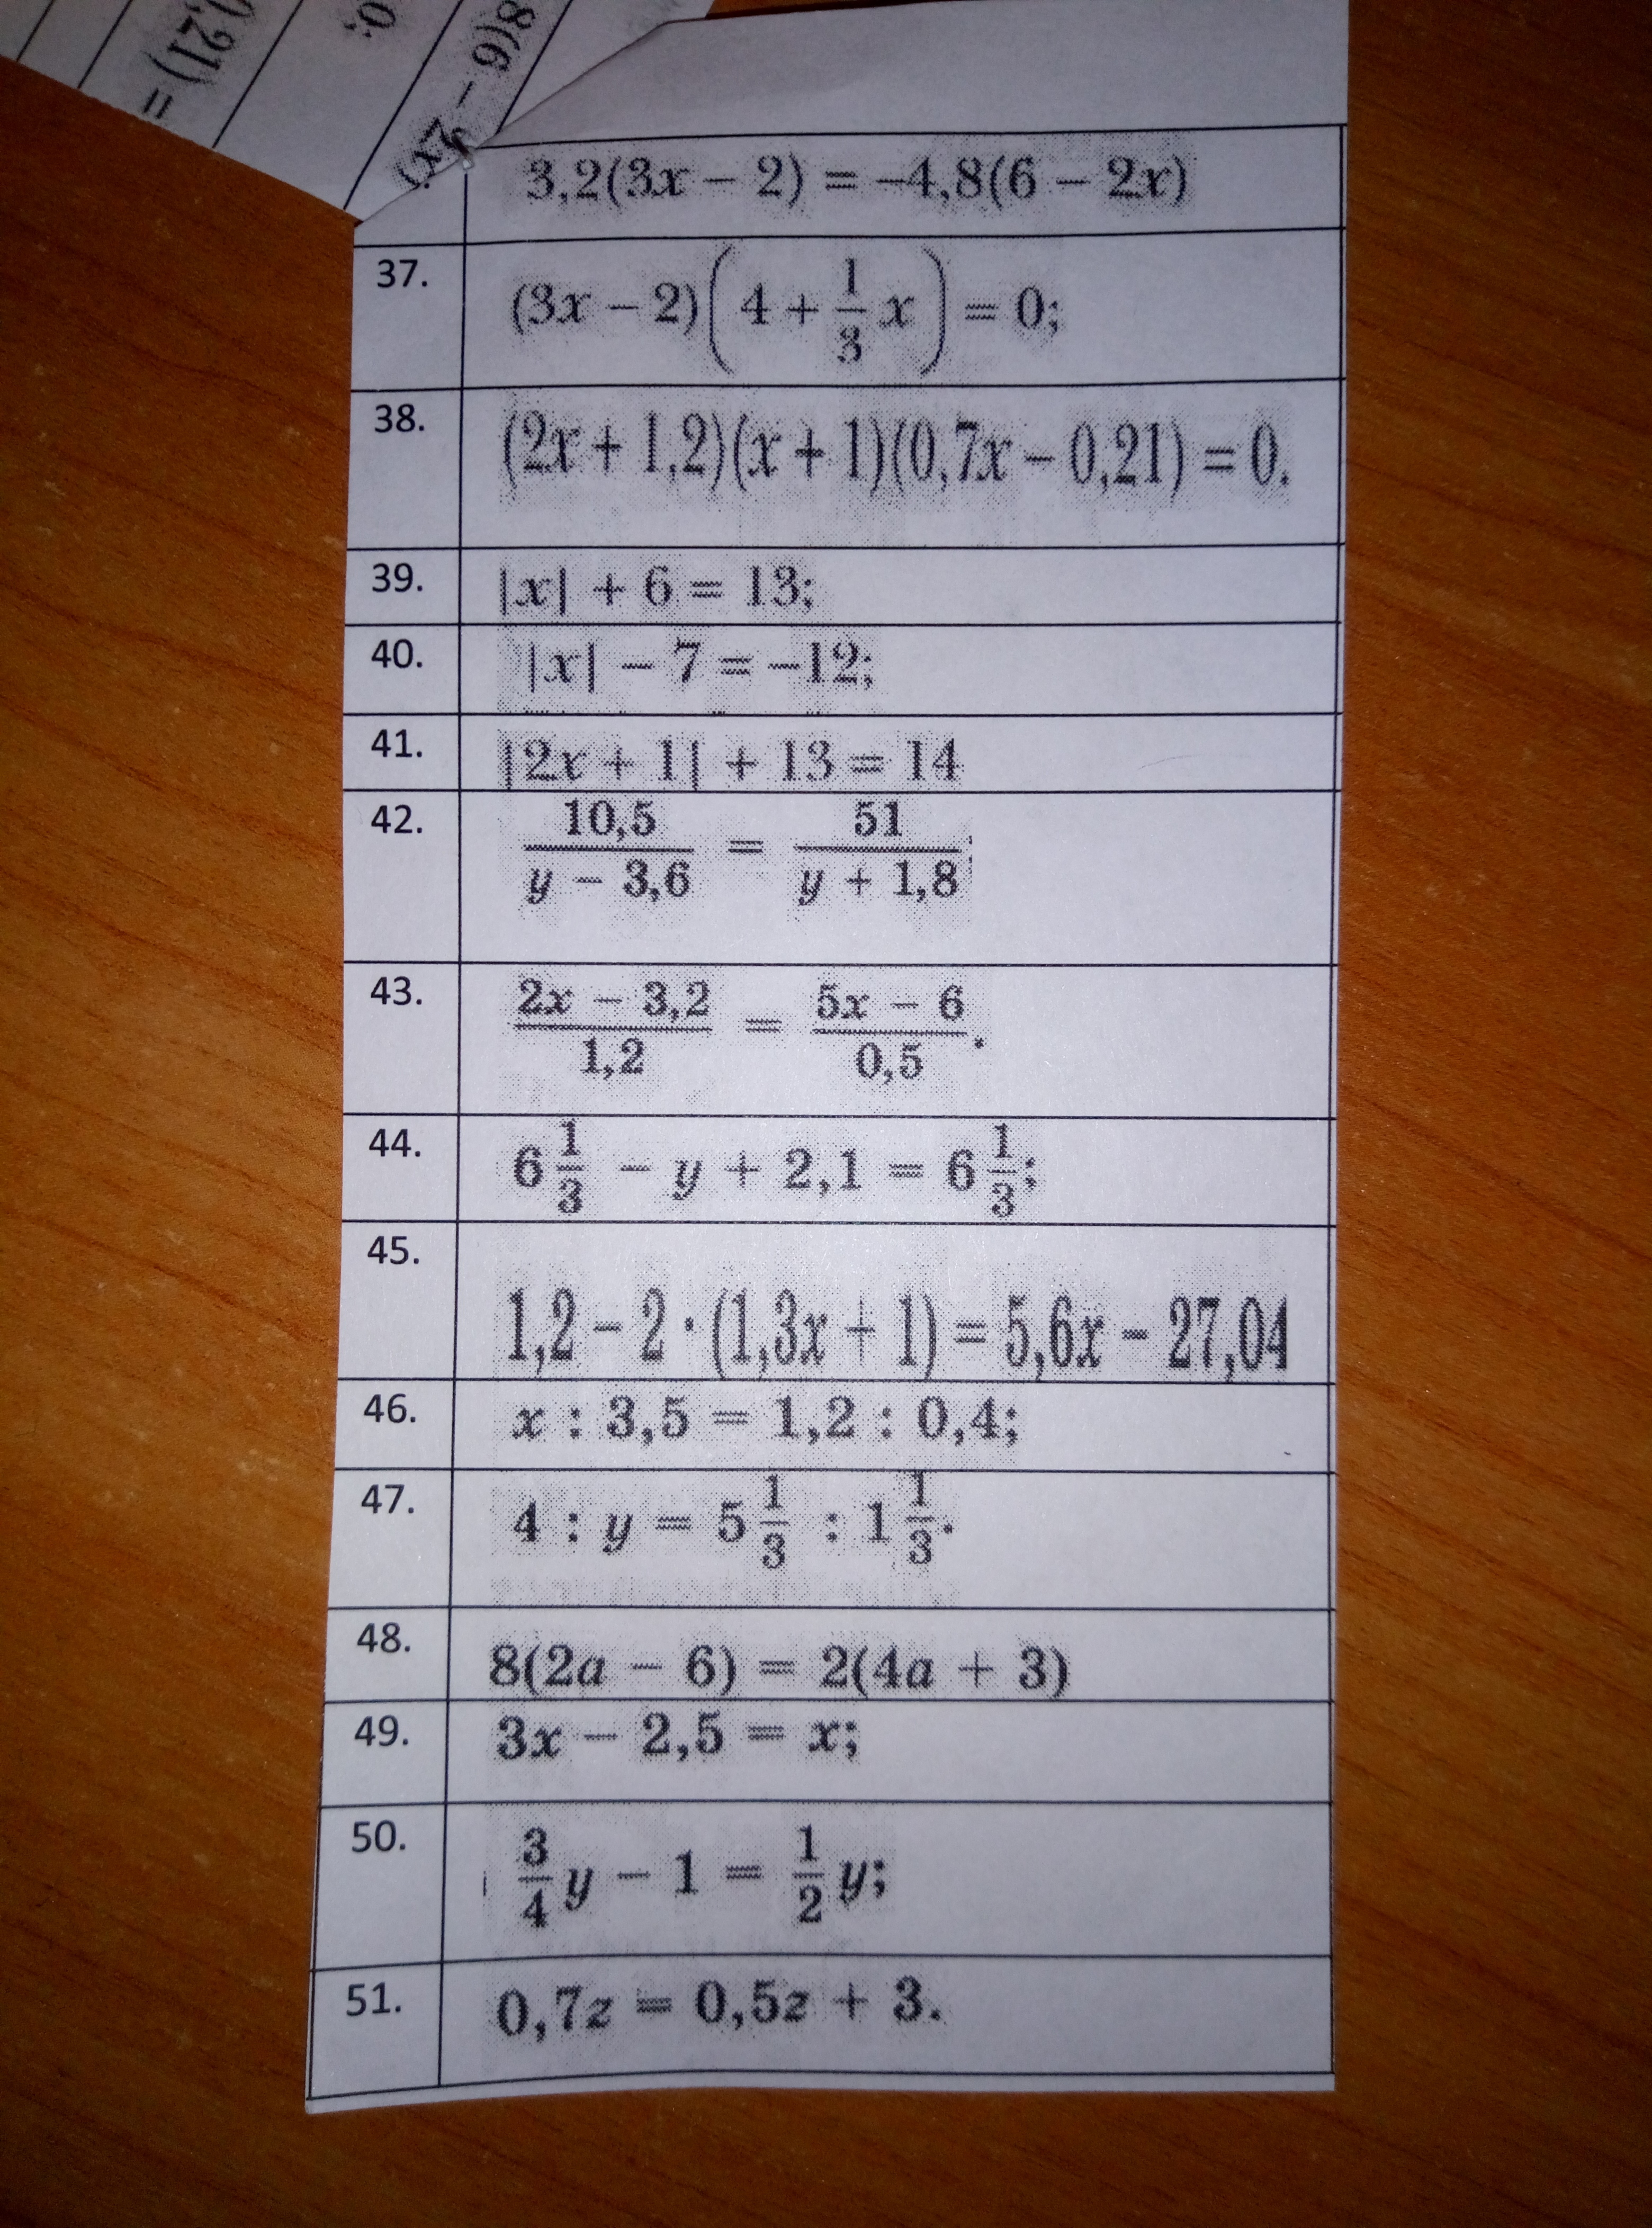 0,21) =
0;
8(6 − 2x)
3,2(3x − 2) = −4,8(6 − 2x)
37. (3x − 2)(4 + 1/3 x) = 0;
38. (2x + 1,2)(x + 1)(0,7x − 0,21) = 0.
39. |x| + 6 = 13;
40. |x| − 7 = −12;
41. |2x + 1| + 13 = 14
42. 10,5/(y − 3,6) = 51/(y + 1,8);
43. (2x − 3,2)/1,2 = (5x − 6)/0,5.
44. 6 1/3 − y + 2,1 = 6 1/3;
45. 1,2 − 2 · (1,3x + 1) = 5,6x − 27,04
46. x : 3,5 = 1,2 : 0,4;
47. 4 : y = 5 1/3 : 1 1/3.
48. 8(2a − 6) = 2(4a + 3)
49. 3x − 2,5 = x;
50. 3/4 y − 1 = 1/2 y;
51. 0,7z = 0,5z + 3.